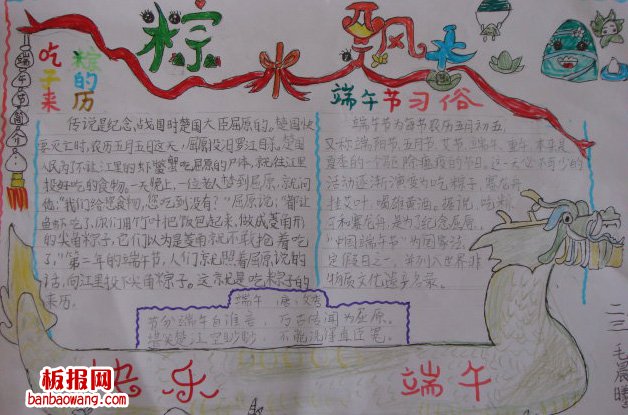 粽
水
飘
香
端午节简介
吃粽
子的
来历
端午节习俗
传说是纪念战国时楚国大臣屈原的。楚国快
要灭亡时,农历五月五日这天,屈原投汨罗江自杀。楚国
人民为了不让江里的虾蟹鳖吃屈原的尸体,就往江里
投好吃的食物。一天晚上,一位老人梦到屈原,就问
他:“我们给您食物,您吃到没有?”屈原说:“都让
鱼虾吃了,你们用竹叶把饭包起来,做成菱角形
的尖角粽子,它们以为是菱角就不敢抢着吃
了。”第二年的端午节,人们就照着屈原说的
话,向江里投下尖角粽子。这就是吃粽子的
来历。
端午节为每年农历五月初五,
又称端阳节、五月节、艾节、端午、重午,本来是
夏季的一个驱除瘟疫的节日,
活动逐渐演变为吃粽子,赛龙舟,
挂艾叶,喝雄黄酒。据说,吃粽
子和赛龙舟,是为了纪念屈原,
“中国端午节”为国家法
定假日之一,并列入世界非
物质文化遗产名录。
端午 唐:文秀
节分端午自谁言,万古传闻为屈原。
堪笑楚江空渺渺,不能洗得直臣冤。
快乐 端午
二二 毛晨晴
板报网
banbaowang.com